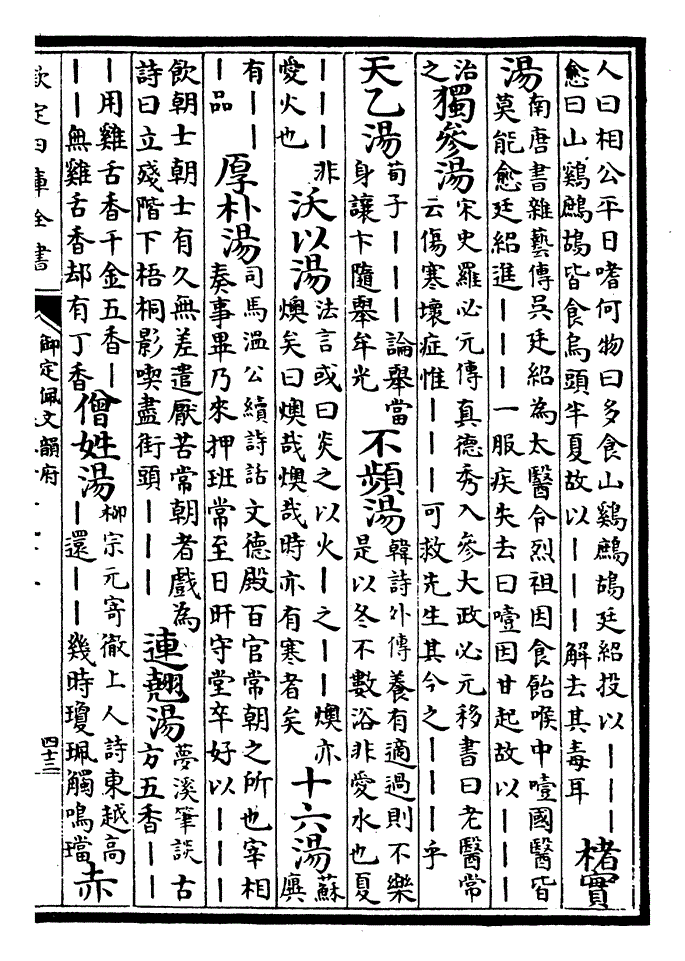 人曰相公平日嗜何物曰多食山鷄鷓鴣廷紹投以｜｜｜
愈曰山鷄鷓鴣皆食烏頭半夏故以｜｜｜解去其毒耳
楮實
湯
南唐書雜藝傳吳廷紹為太醫令烈祖因食飴喉中噎國醫皆
莫能愈廷紹進｜｜｜一服疾失去曰噎因甘起故以｜｜｜
治
之
獨參湯
宋史羅必元傳真德秀入參大政必元移書曰老醫常
云傷寒壞症惟｜｜｜可救先生其今之｜｜｜乎
天乙湯
荀子｜｜｜論舉當
身讓卞隨舉牟光
不頻湯
韓詩外傳養有適過則不樂
是以冬不數浴非愛水也夏
｜｜｜非
愛火也
沃以湯
法言或曰炎之以火｜之｜｜燠亦
燠矣曰燠哉燠哉時亦有寒者矣
十六湯
蘇
廙
有｜｜
｜品
厚朴湯
司馬溫公續詩話文德殿百官常朝之所也宰相
奏事畢乃來押班常至日旰守堂卒好以｜｜｜
飲朝士朝士有久無差遣厭苦常朝者戲為
詩曰立殘階下梧桐影喫盡街頭｜｜｜
連翹湯
夢溪筆談古
方五香｜｜
｜用雞舌香千金五香｜
｜｜無雞舌香却有丁香
僧姓湯
柳宗元寄徹上人詩東越高
｜還｜｜幾時瓊珮觸鳴璫
赤
欽定四庫全書
御定佩文韻府
四十三